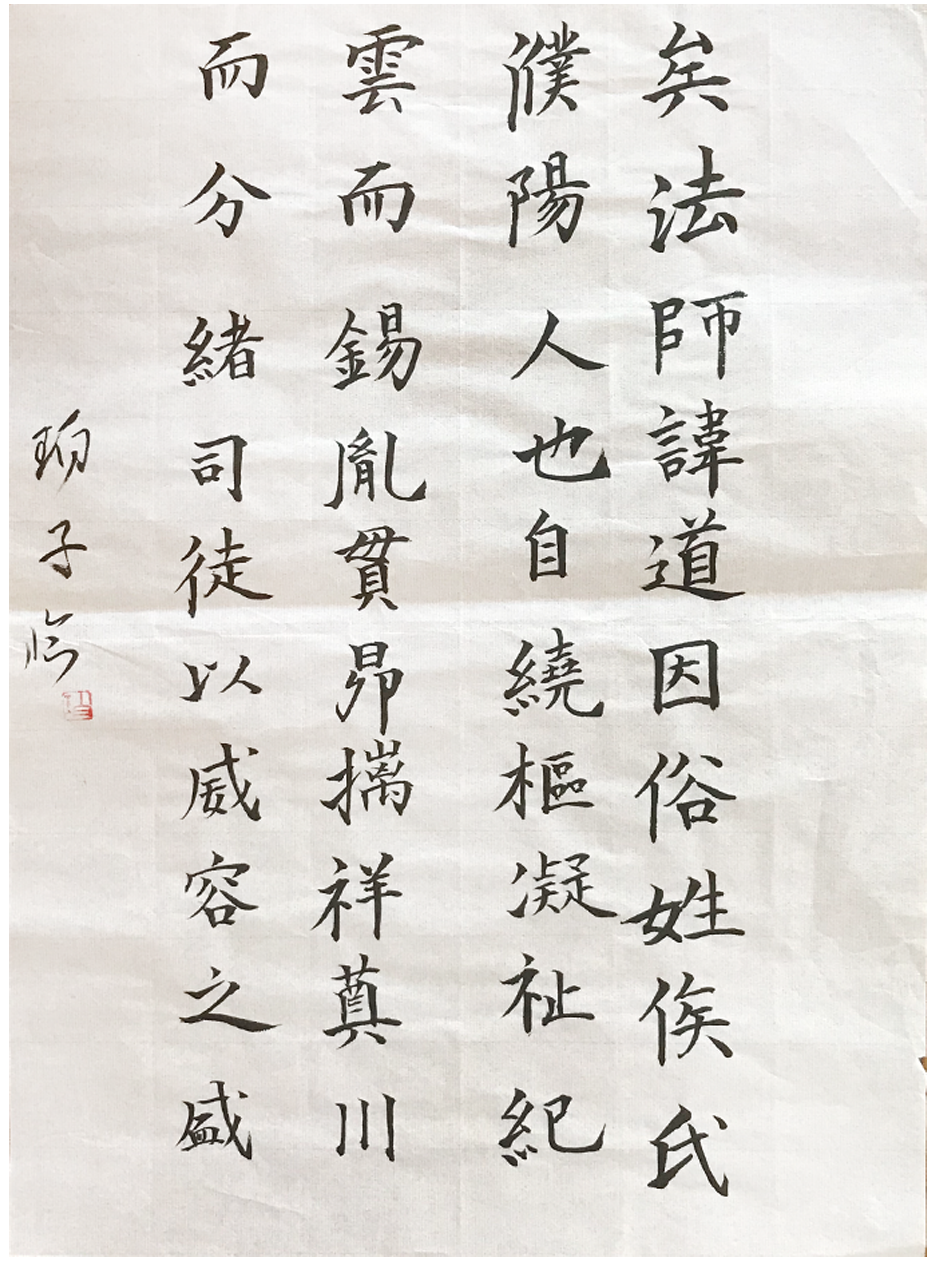 矣法師諱道因俗姓侯氏
濮陽人也自繞樞凝祉紀
雲而錫胤貫昴摛祥奠川
而分緒司徒以威容之盛
子临